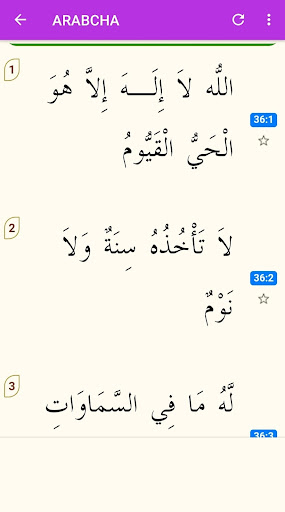 ARABCHA
1
اللّٰه لاَ إِلَـــهَ إِلاَّ هُوَ
36:1
الْحَيُّ الْقَيُّومُ
2
لاَ تَأْخُذُهُ سِنَةٌ وَلاَ
36:2
نَوْمٌ
3
لَّهُ مَا فِي السَّمَاوَاتِ
36:3